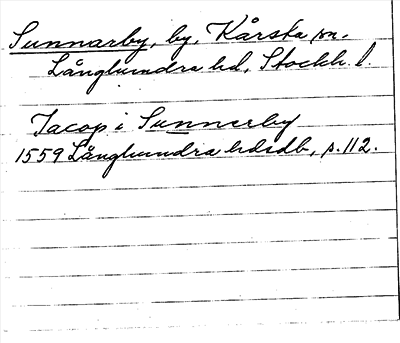 Sunnarby, by, Kårsta sn.
Långhundra hd, Stockh. l.
Jacop i Sunnerby
1559 Långhundra hdsdb, s. 112.